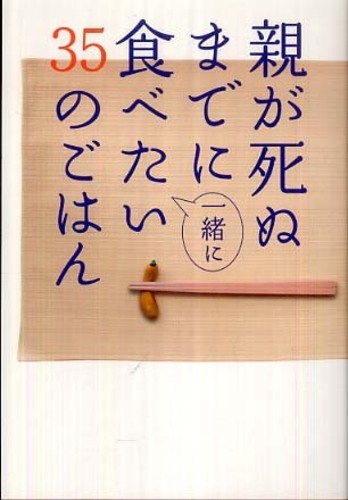 親が死ぬ
までに
一緒に
食べたい
35
のごはん